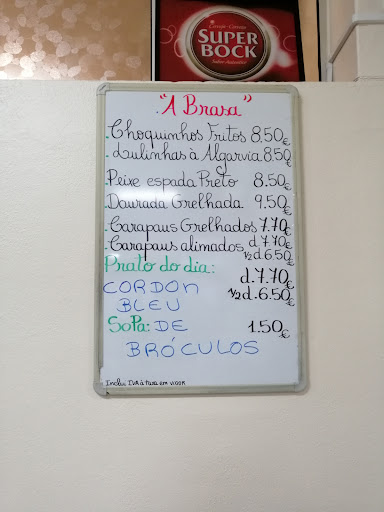 Cerveja - Cerveza
SUPER
BOCK
Sabor Autêntico
"A Brasa"
Choquinhos Fritos 8.50€
Lulinhas à Algarvia 8.50
Peixe espada Preto 8.50€
Dourada Grelhada 9.50€
Carapaus Grelhados 7.70€
Carapaus alimados d 7.70€
½ d.6.50€
Prato do dia: d.7.70€
CORDON ½ d.6.50€
BLEU
SoPa: DE 1.50€
BRÓCULOS
Inclui IVA à taxa em vigor